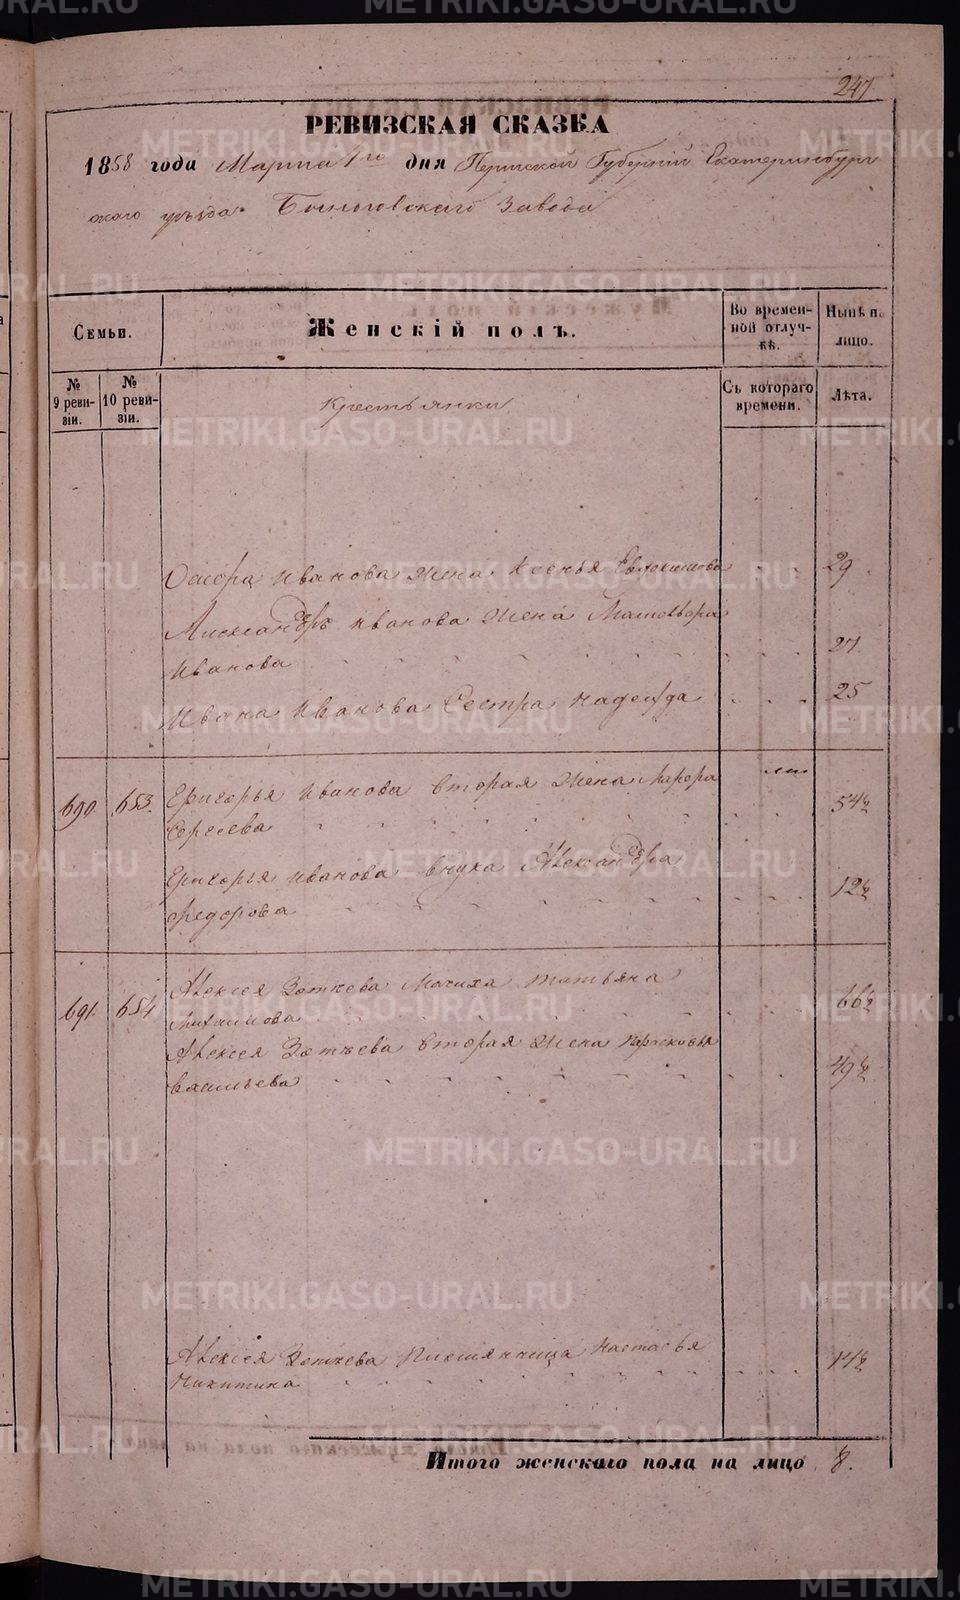 METRIKI.GASO-URAL.RU
247
РЕВИЗСКАЯ СКАЗКА
1858 года Марта 1го дня Пермской Губернiи Екатеринбург
скаго уѣзда Быньговскаго Завода
Семьи.
Женскiй полъ.
Во времен-
ной отлуч-
кѣ.
Нынѣ н.
лицо.
№
9 реви-
зiи.
№
10 реви-
зiи.
Крестьянки
Съ котораго
времени.
Лѣта.
Иванова жена Ксенья Евдокимова 29
Александръ Иванова жена
Иванова 27
Ивана Иванова Сестра Надежда 25
690 653 Григорья Иванова вторая жена
Сергеева 54½
Григорья Иванова внука Александра
Федорова 12½
691 654 Алексея Зотѣева Мачиха Татьяна
66½
Алексея Зотѣева вторая жена Парасковья
Васильева 49½
Алексея Зотѣева Племянница Настасья
Никитина 14½
Итого женскаго пола на лицо 8.